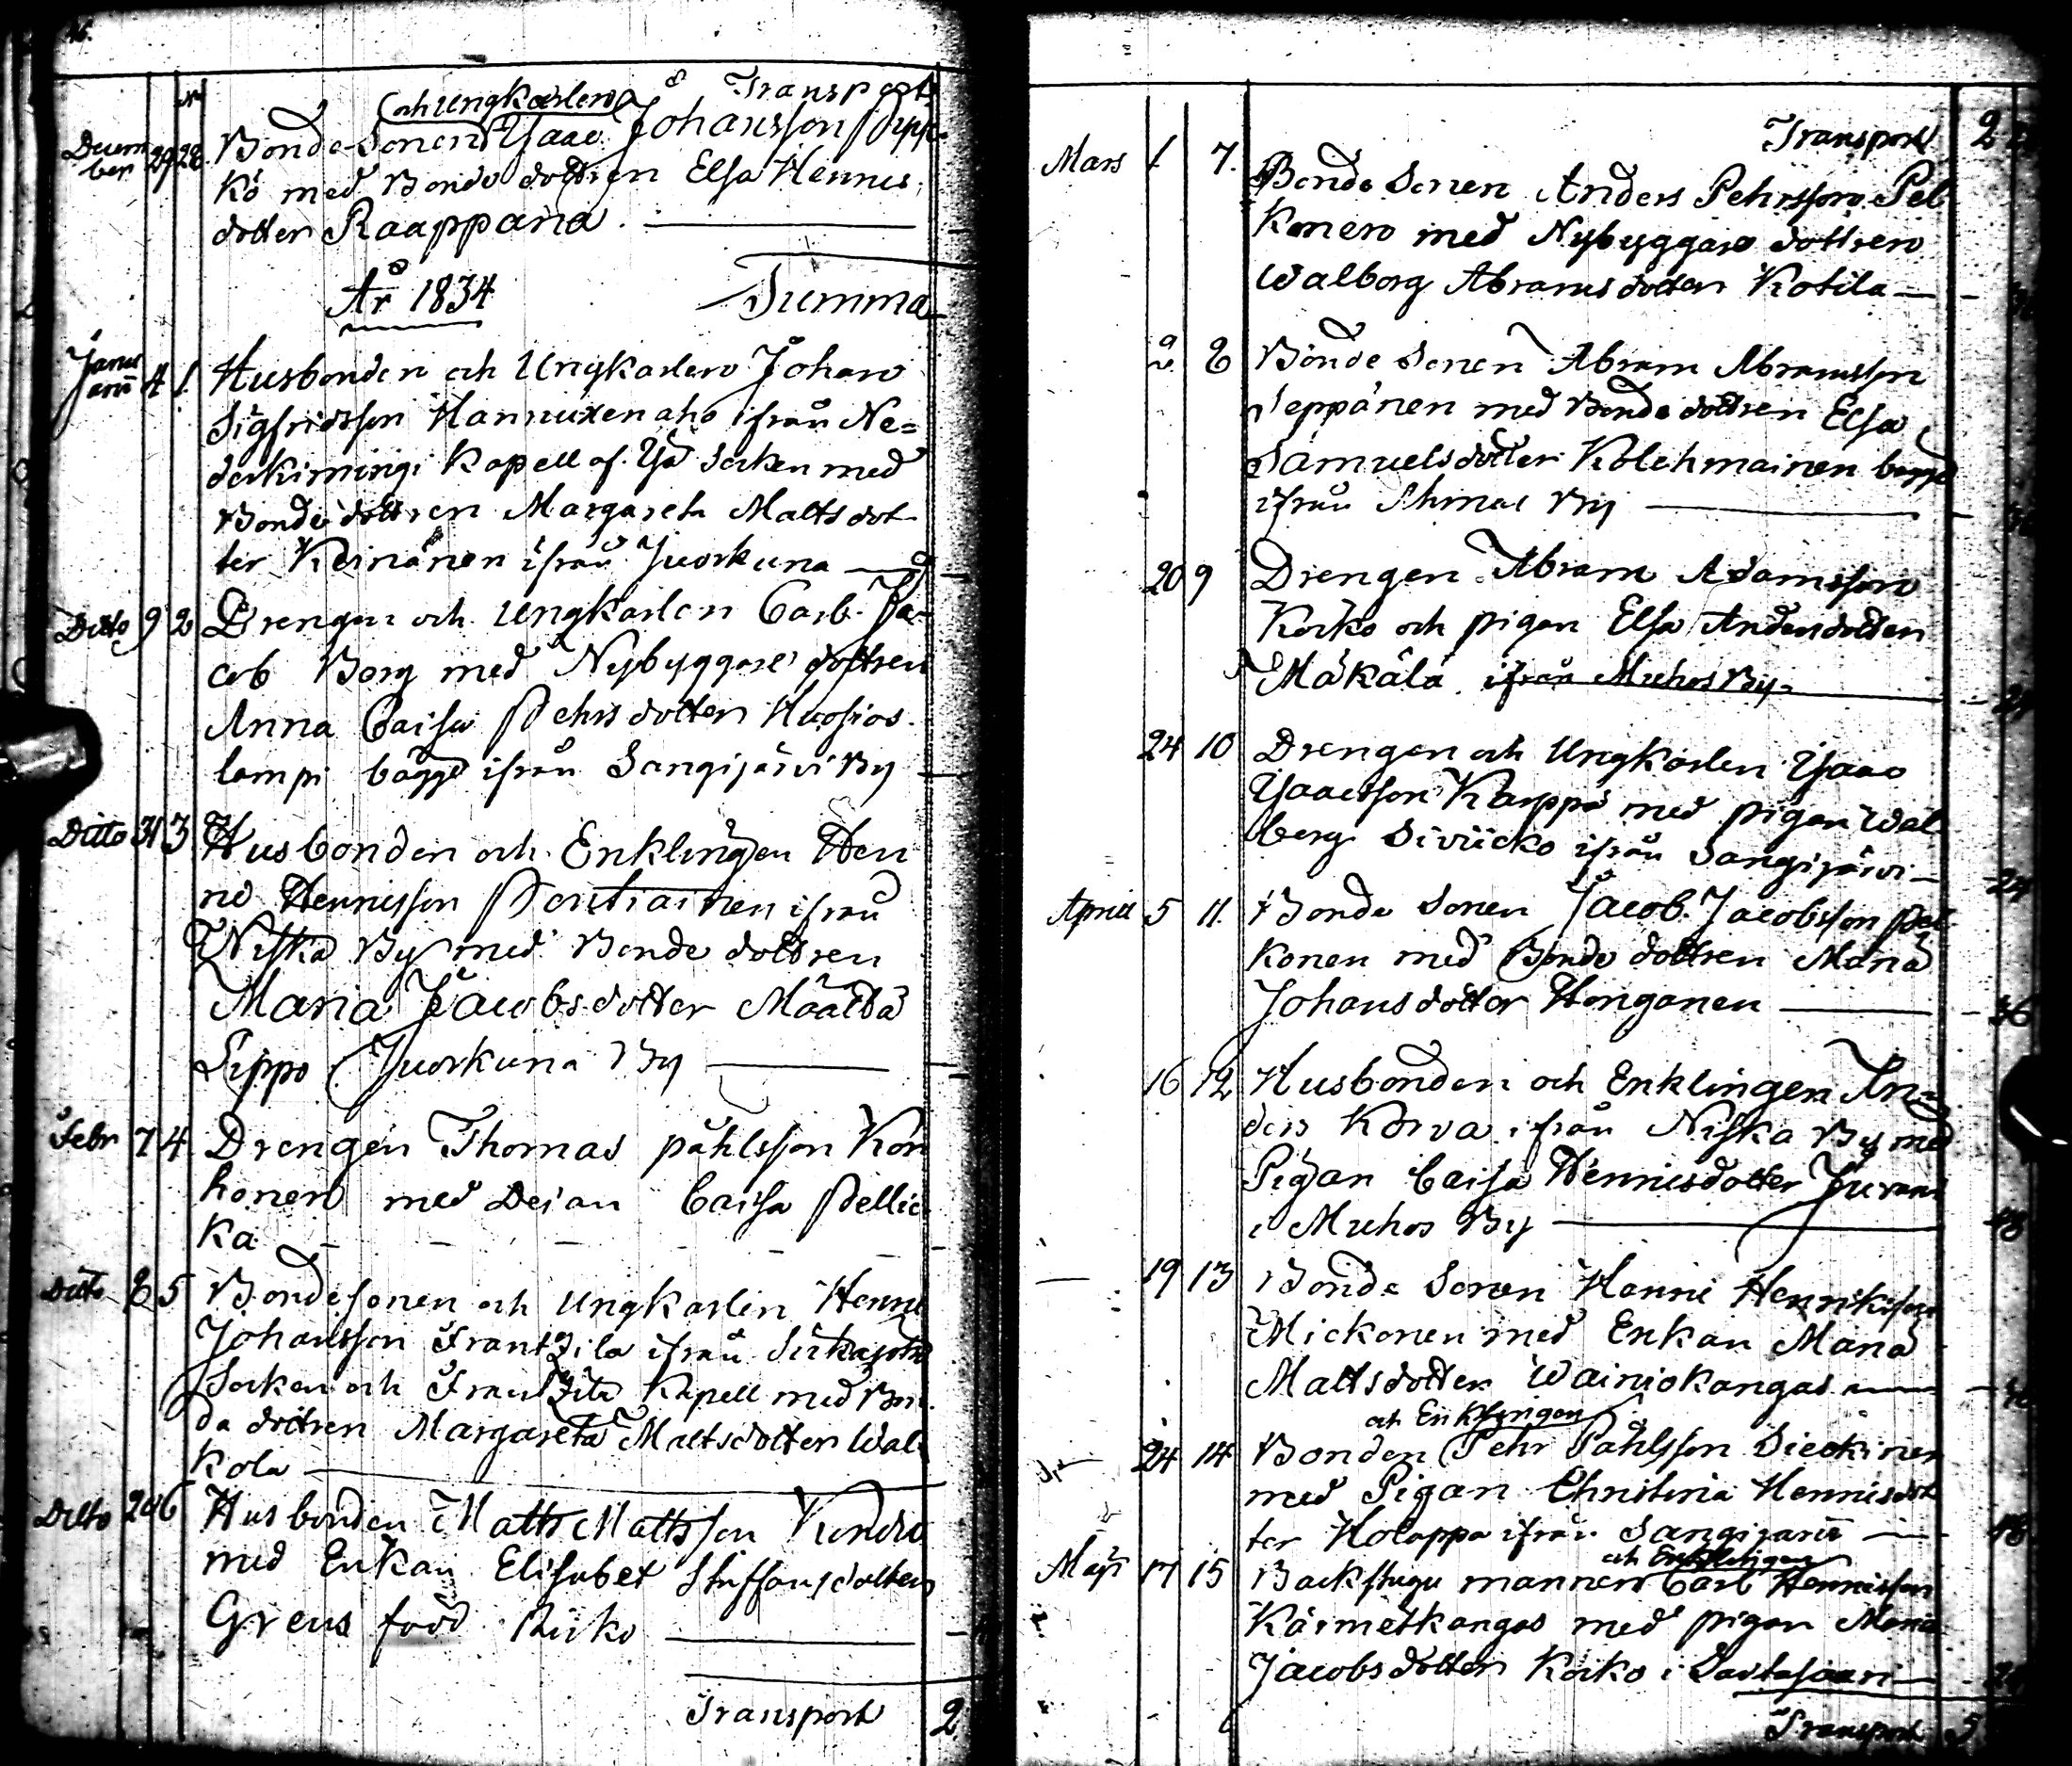 46.
N
och Ungkarlen Transport
Decem ber 29 28. Bonde Sonen Isaac Johansson Pyyk
kö med Bonde dottren Elsa Hennis
dotter Raappana
År 1834 Summa
Janu arii 4 1. Husbonden och Ungkarlen Johan
Sigfridsson Hannuxenaho ifrån Ne=
derkimingi Kapell af Ijo Socken med
Bonde dottren Margareta Matts dot
ter Keinänen ifrån Juorkuna
Ditto 9 2 Drengen och Ungkarlen Carl Ja-
cob Borg med Nybyggare dottren
Anna Caisa Pehrs dotter Huosios
lampi bägge ifrån Sangijärvi By
Ditto 31 3 Husbonden och Enklingen Hen
ric Hennisson Pentiainen ifrån
Niska By med Bonde dottren
Maria Jacobs dotter Määttä
Lippo Juorkuna By
Febr 7 4 Drengen Thomas Påhlsson Kor
honen med Dejan Caisa Pellic
ka
Ditto 8 5 Bondesonen och Ungkarlen Henric
Johansson Frantzila ifrån Siikajoki
Socken och Frantzila Kapell med Bon
de dottren Margareta Mattsdotter Wal
kola
Ditto 20 6 Husbonden Matts Mattsson
med Enkan Elisabet Staffansdotter
Grens född
Transport 2
Transport 2
Mars 1 7. Bonde Sonen Anders Pehrsson Pel
konen med Nybyggare dottren
Walborg Abrams dotter Kotila
2 8 Bonde Sonen Abram Abramsson
Seppänen med Bonde dottren Elsa
Samuels dotter Kolehmainen bägge
ifrån Ahmas By
20 9 Drengen Abram Adamsson
Korko och pigan Elsa Andersdotter
Mäkälä ifrån Muhos By
24 10 Drengen och Ungkarlen Isaac
Isaacsson Karppa med pigan Wal
borg Siviicko ifrån Sangijärvi 24
April 5 11. Bonde Sonen Jacob Jacobsson Pel
konen med Bonde dottren Maria
Johans dotter Honganen 36
16 12 Husbonden och Enklingen An=
ders Korva ifrån Niska By med
Pigan Caisa Hennisdotter
i Muhos By 48
19 13 Bonde Sonen Hanni Henriksson
Mickonen med Enkan Maria
Mattsdotter Wainiokangas
och Enklingen
24 14 Bonden Pehr Påhlsson Sieckinen
med Pigan Christina Hennisdot
ter Holappa ifrån Sangijärvi 48
och Enklingen
Maji 17 15 Backstugu mannen Carl Hennisson
Kärmetkangas med pigan Maria
Jacobs dotter Korko i
Transport 5